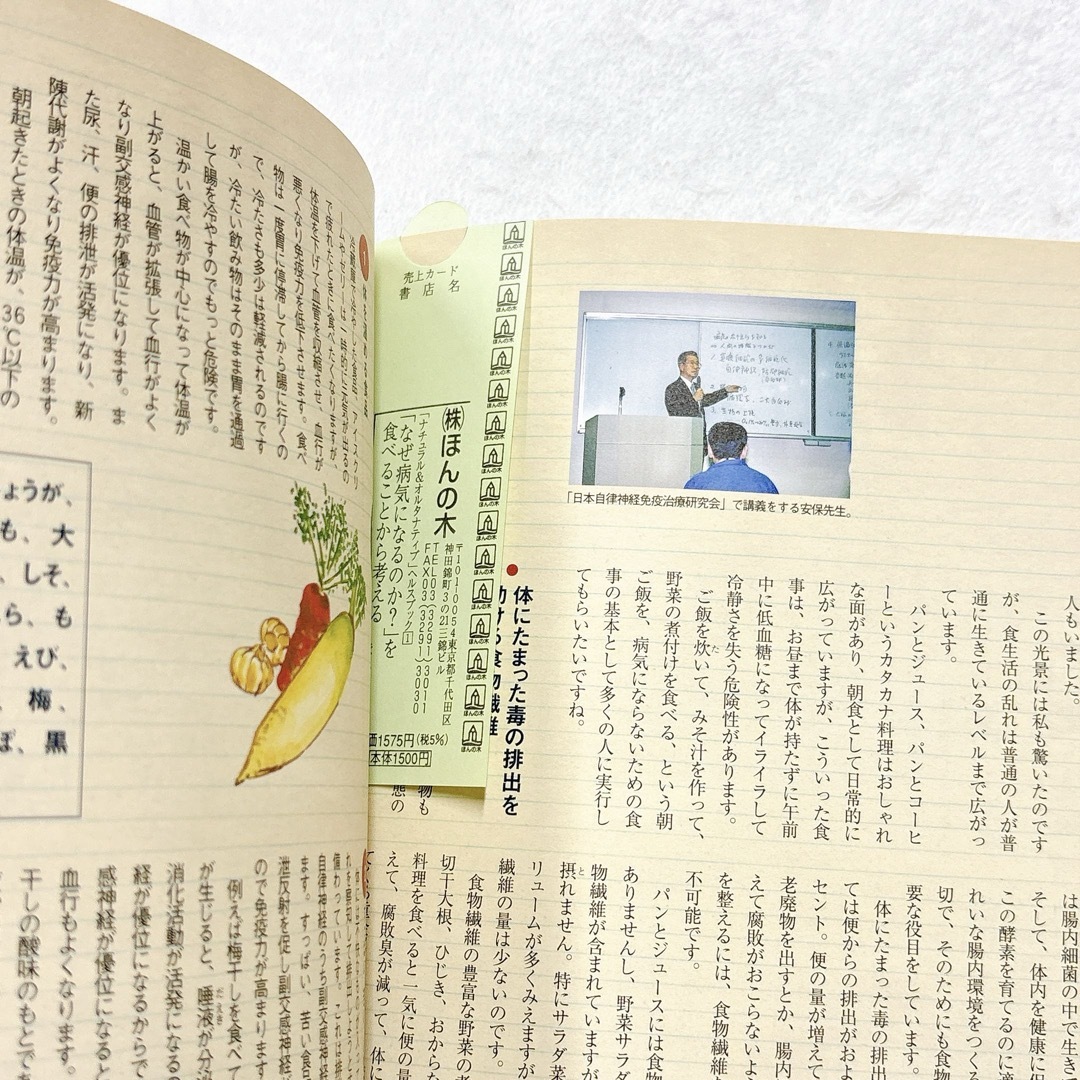 で疲れたときに食べたくなりますが、
体温を下げて血管を収縮させ、血行が
悪くなり免疫力を低下させます。食べ
物は一度胃に停滞してから腸に行くの
で、冷たさも多少は軽減されるのです
が、冷たい飲み物はそのまま胃を通過
して腸を冷やすのでもっと危険です。
温かい食べ物が中心になって体温が
上がると、血管が拡張して血行がよく
なり副交感神経が優位になります。ま
た尿、汗、便の排泄が活発になり、新
陳代謝がよくなり免疫力が高まります。
朝起きたときの体温が、36℃以下の
ょうが、
も、大
、しそ、
ら、も
えび、
、梅、
ぼ、黒
自律神経のうち副交感神経
ます。すっぱい、苦い食
泄反射を促し副交感神経が
ので免疫力が高まります
例えば梅干しを食べて
が生じると、唾液が分泌
だえき
消化活動が活発になるの
経が優位になるからで
感神経が優位になると
血行もよくなります。
干しの酸味のもとで
売上カード
書店名
ほんの木
㈱ほんの木
〒101-0054東京都千代田区
神田錦町3の21三錦ビル
TEL03(3291)3011
FAX03(3291)3030
「ナチュラル&オルタナティブ」ヘルスブック1
「なぜ病気になるのか?」を
食べることから考える
価1575円(税5%)
本体1500円
「日本自律神経免疫治療研究会」で講義をする安保先生。
人もいました。
この光景には私も驚いたのです
が、食生活の乱れは普通の人が普
通に生きているレベルまで広がっ
ています。
パンとジュース、パンとコーヒ
ーというカタカナ料理はおしゃれ
な面があり、朝食として日常的に
広がっていますが、こういった食
事は、お昼まで体が持たずに午前
中に低血糖になってイライラして
冷静さを失う危険性があります。
ご飯を炊いて、みそ汁を作って、
た
野菜の煮付けを食べる、という朝
ご飯を、病気にならないための食
事の基本として多くの人に実行し
てもらいたいですね。
●体にたまった毒の排出を
は腸内細菌の中で生き
そして、体内を健康に保
この酵素を育てるのに適
れいな腸内環境をつくる
切で、そのためにも食物
要な役目をしています。
体にたまった毒の排出
ては便からの排出がおよ
セント。便の量が増えて
老廃物を出すとか、腸内
えて腐敗がおこらないよ
を整えるには、食物繊維
不可能です。
パンとジュースには食物
ありませんし、野菜サラダ
物繊維が含まれていますが
摂れません。特にサラダ菜
と
リュームが多くみえますが
繊維の量は少ないのです。
食物繊維の豊富な野菜の煮
切干大根、ひじき、おからな
料理を食べると一気に便の量
えて、腐敗臭が減って、体に